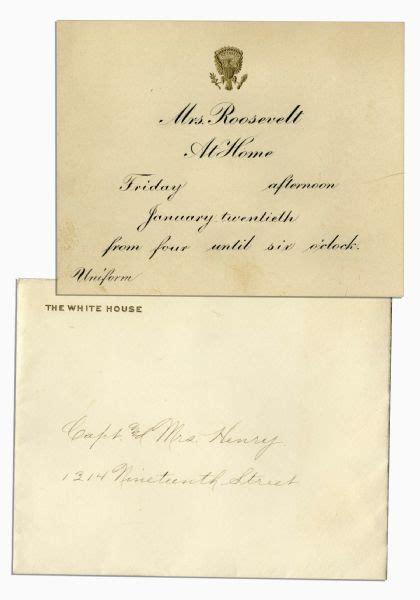 Mrs. Roosevelt
At Home
Friday afternoon
January twentieth
from four until six o'clock.
Uniform
THE WHITE HOUSE
Capt. & Mrs. Henry
1214 Nineteenth Street